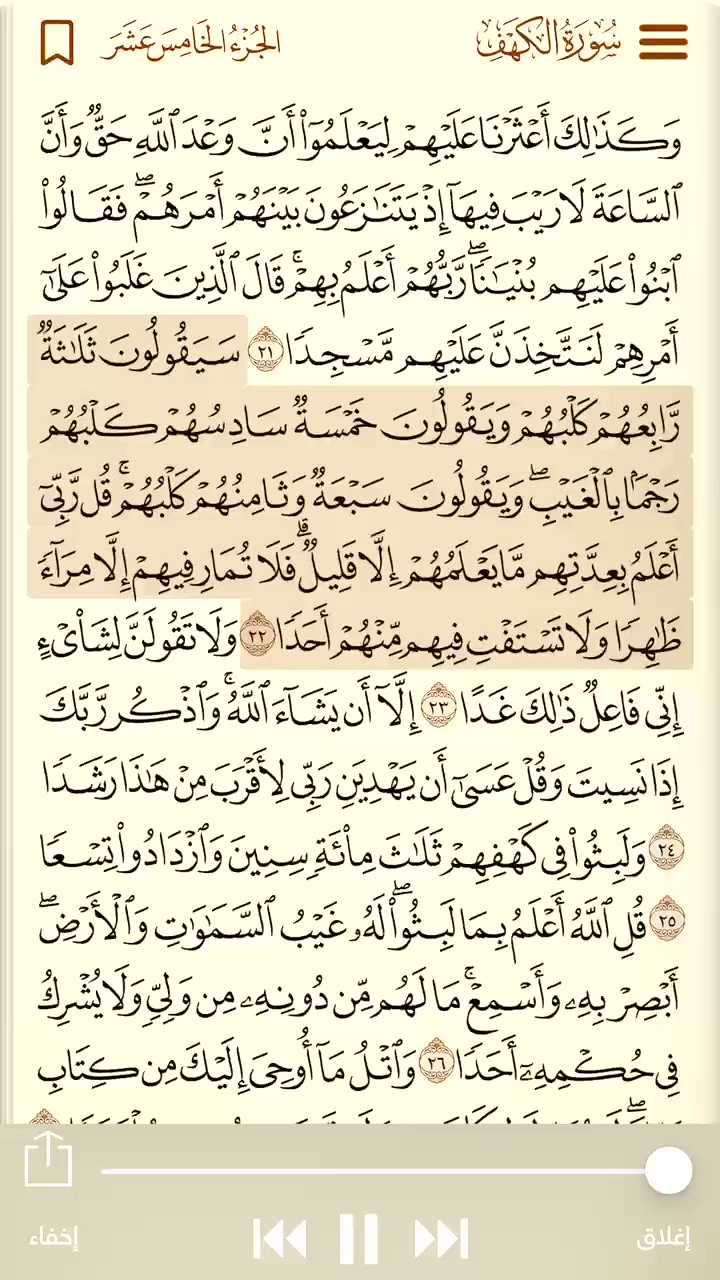 سُورَةُ الكَهْفِ
الجُزْءُ الخَامِسَ عَشَرَ
وَكَذَٰلِكَ أَعْثَرْنَا عَلَيْهِمْ لِيَعْلَمُوٓا۟ أَنَّ وَعْدَ ٱللَّهِ حَقٌّ وَأَنَّ
ٱلسَّاعَةَ لَا رَيْبَ فِيهَآ إِذْ يَتَنَٰزَعُونَ بَيْنَهُمْ أَمْرَهُمْ ۖ فَقَالُوا۟
ٱبْنُوا۟ عَلَيْهِم بُنْيَٰنًا ۖ رَّبُّهُمْ أَعْلَمُ بِهِمْ ۚ قَالَ ٱلَّذِينَ غَلَبُوا۟ عَلَىٰٓ
أَمْرِهِمْ لَنَتَّخِذَنَّ عَلَيْهِم مَّسْجِدًا ٢١ سَيَقُولُونَ ثَلَٰثَةٌ
رَّابِعُهُمْ كَلْبُهُمْ وَيَقُولُونَ خَمْسَةٌ سَادِسُهُمْ كَلْبُهُمْ
رَجْمًۢا بِٱلْغَيْبِ ۖ وَيَقُولُونَ سَبْعَةٌ وَثَامِنُهُمْ كَلْبُهُمْ ۚ قُل رَّبِّىٓ
أَعْلَمُ بِعِدَّتِهِم مَّا يَعْلَمُهُمْ إِلَّا قَلِيلٌ ۗ فَلَا تُمَارِ فِيهِمْ إِلَّا مِرَآءً
ظَٰهِرًا وَلَا تَسْتَفْتِ فِيهِم مِّنْهُمْ أَحَدًا ٢٢ وَلَا تَقُولَنَّ لِشَا۟ىْءٍ
إِنِّى فَاعِلٌ ذَٰلِكَ غَدًا ٢٣ إِلَّآ أَن يَشَآءَ ٱللَّهُ ۚ وَٱذْكُر رَّبَّكَ
إِذَا نَسِيتَ وَقُلْ عَسَىٰٓ أَن يَهْدِيَنِ رَبِّى لِأَقْرَبَ مِنْ هَٰذَا رَشَدًا
٢٤ وَلَبِثُوا۟ فِى كَهْفِهِمْ ثَلَٰثَ مِا۟ئَةٍ سِنِينَ وَٱزْدَادُوا۟ تِسْعًا
٢٥ قُلِ ٱللَّهُ أَعْلَمُ بِمَا لَبِثُوا۟ ۖ لَهُۥ غَيْبُ ٱلسَّمَٰوَٰتِ وَٱلْأَرْضِ ۖ
أَبْصِرْ بِهِۦ وَأَسْمِعْ ۚ مَا لَهُم مِّن دُونِهِۦ مِن وَلِىٍّ وَلَا يُشْرِكُ
فِى حُكْمِهِۦٓ أَحَدًا ٢٦ وَٱتْلُ مَآ أُوحِىَ إِلَيْكَ مِن كِتَابِ
إغلاق
إخفاء